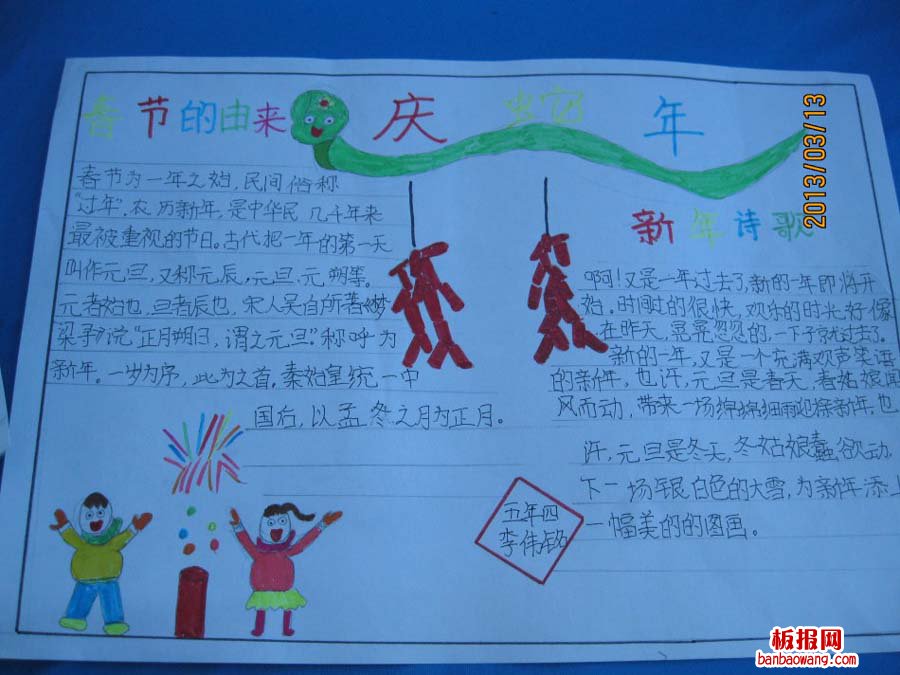 春节的由来
庆蛇年
春节为一年之始，民间俗称
“过年”，农历新年，是中华民 几千年来
最被重视的节日。古代把一年的第一天
叫作元旦，又称元辰，元旦，元朔等。
元者始也，旦者辰也，宋人吴自所著梦
梁录》说“正月朔日，谓之元旦”。称呼为
新年。一岁为序，此为之首。秦始皇统一中
国后，以孟冬之月为正月。
新年诗歌
啊！又是一年过去了，新的一年即将开
始。时间过的很快，欢乐的时光好像
在昨天，晃晃忽忽的，一下子就过去了。
新的一年，又是一个充满欢声笑语
的新年，也许，元旦是春天，春姑娘闻
风而动，带来一场绵绵细雨迎接新年，也
许，元旦是冬天，冬姑娘蠢欲动，
下一场银白色的大雪，为新年添上
一幅美的的图画。
五年四
李伟铭
2013/03/13
板报网
banbaowang.com